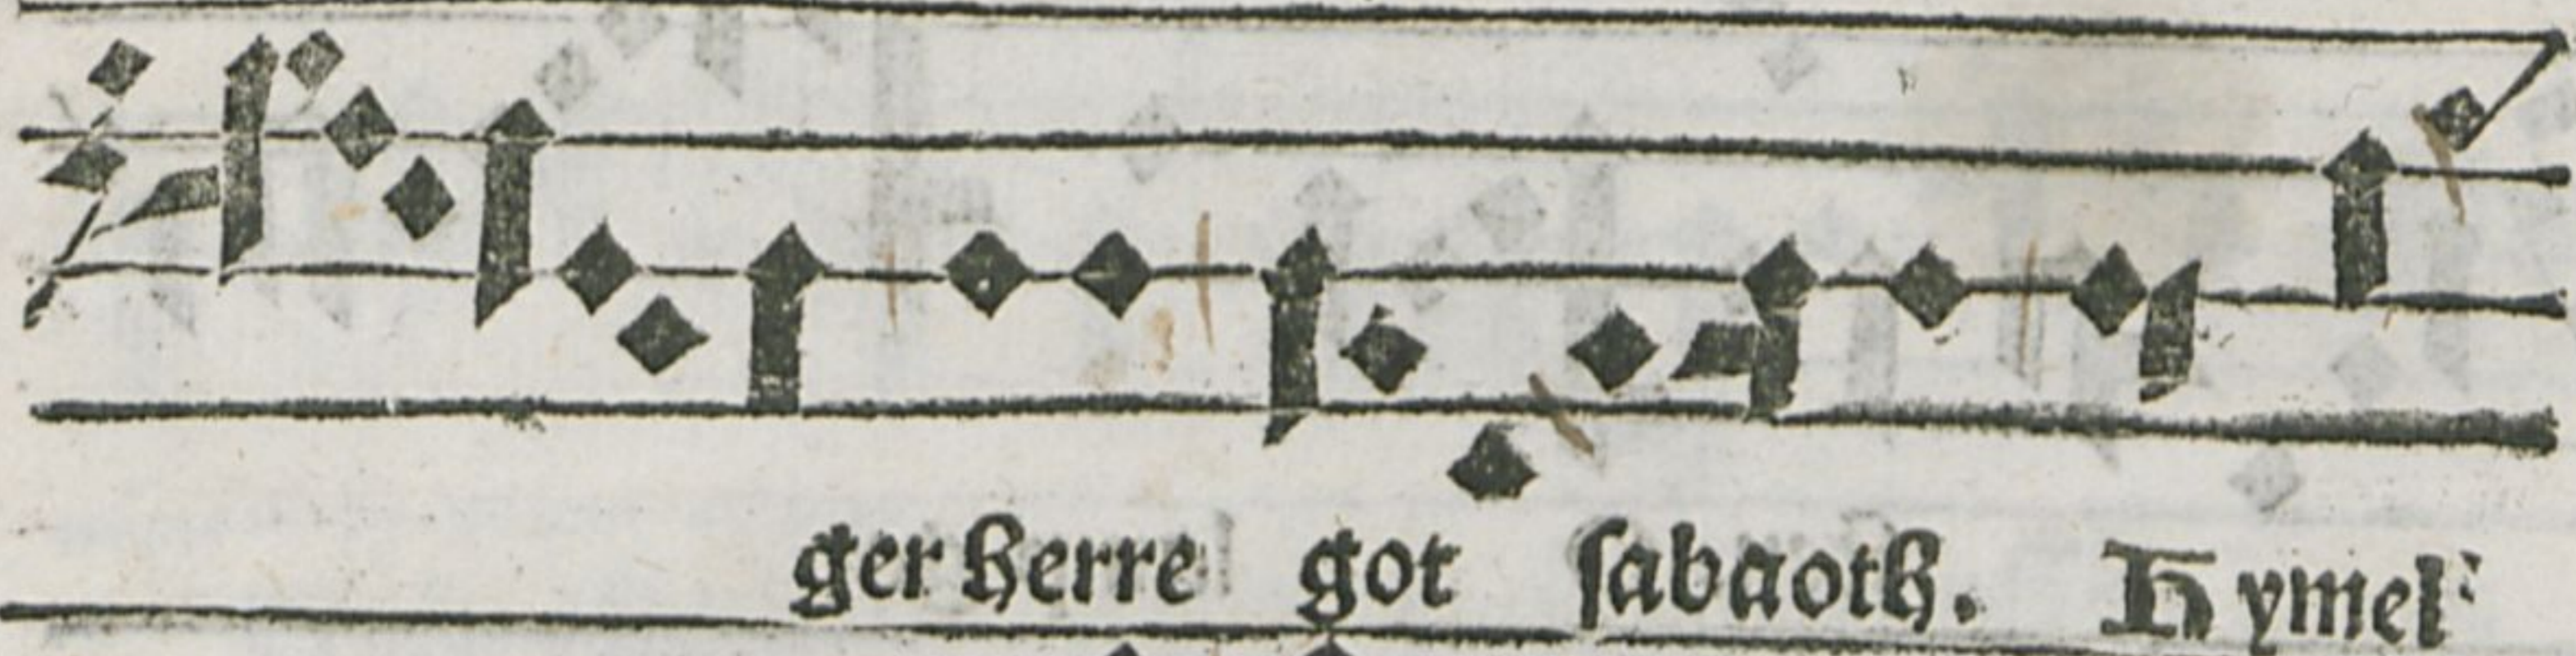 ger herre got ſabaoth. Hymel⸗